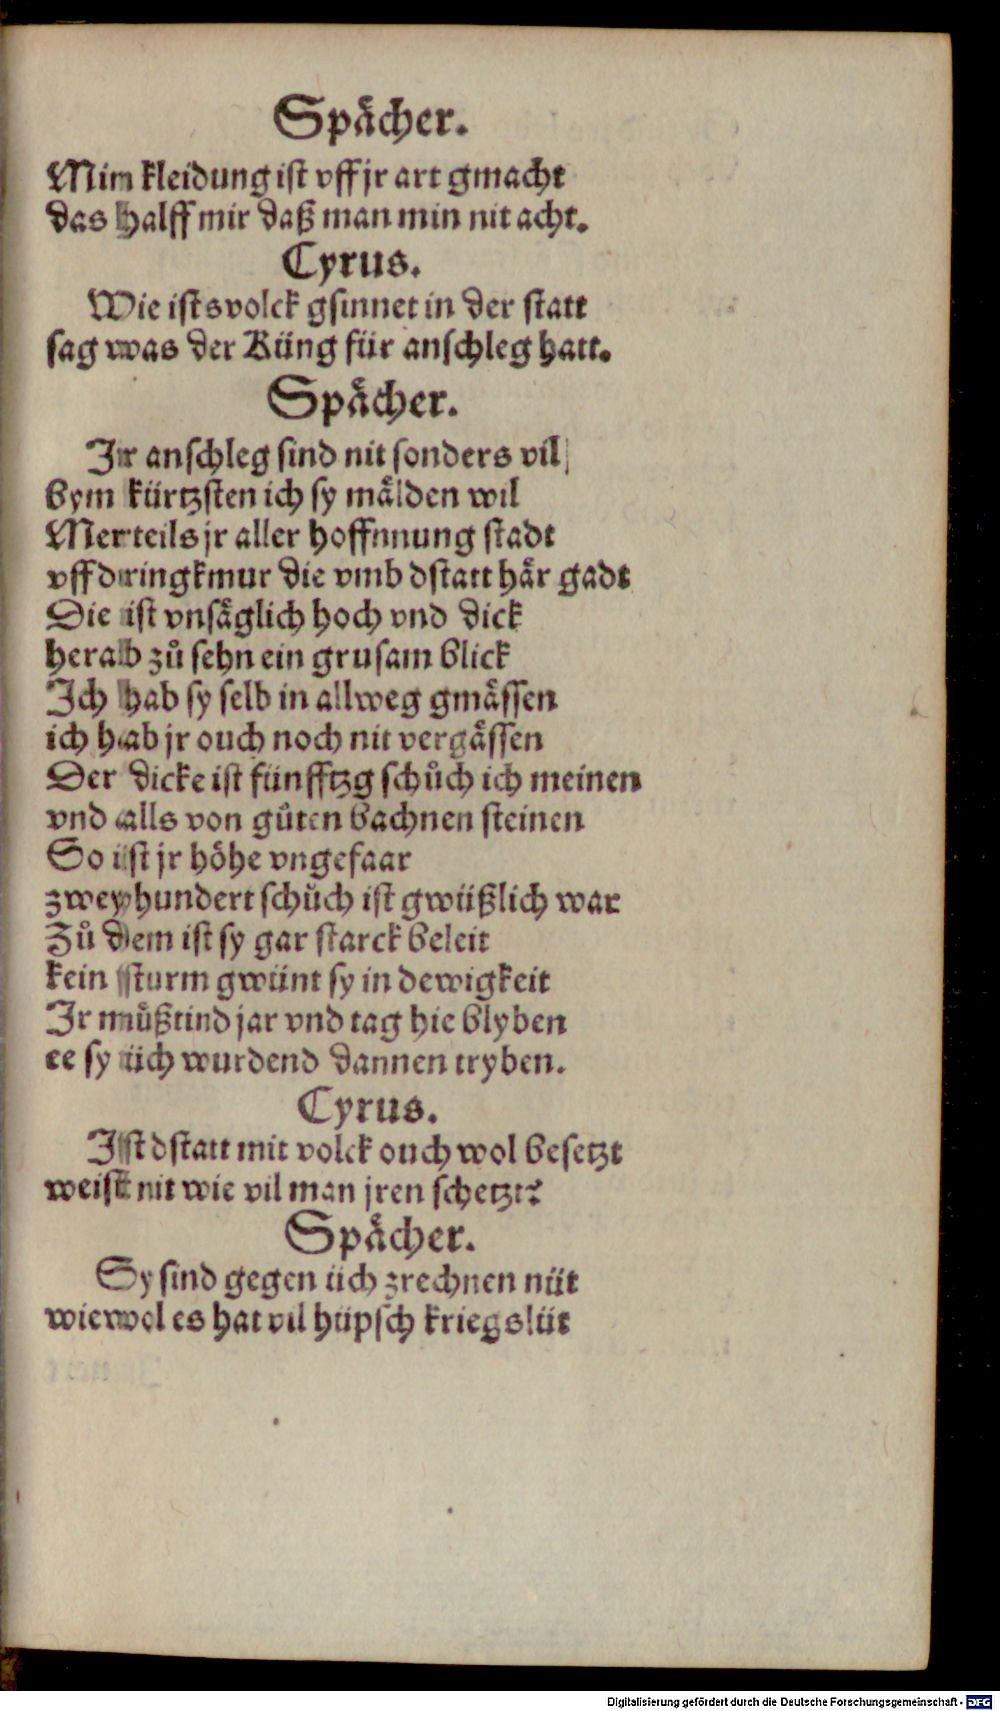 Spaͤcher.
Min kleidung ist vff jr art gmacht
das halff mir daß man min nit acht.
Cyrus.
Wie ists volck gsinnet in der statt
sag was der Küng für anschleg hatt.
Spaͤcher.
Ir anschleg sind nit sonders vil
bym kürtzsten ich sy maͤlden wil
Merteils jr aller hoffnnung stadt
vff dringkmur die vmb dstatt haͤr gadt
Die ist vnsaͤglich hoch vnd dick
herab zuͦ sehn ein grusam blick
Ich hab sy selb in allweg gmaͤssen
ich hab jr ouch noch nit vergaͤssen
Der dicke ist fünfftzg schuͦch ich meinen
vnd alls von guͦten bachnen steinen
So ist jr hoͤhe vngefaar
zwey hundert schuͦch ist gwüßlich war
Zuͦ dem ist sy gar starck beleit
kein sturm gwünt sy in dewigkeit
Ir muͤßtind jar vnd tag hie blyben
ee sy üch wurdend dannen tryben.
Cyrus.
Ist dstatt mit volck ouch wol besetzt
weist nit wie vil man jren schetzt?
Spaͤcher.
Sy sind gegen üch zrechnen nüt
wiewol es hat vil hüpsch kriegslüt
Digitalisierung gefördert durch die Deutsche Forschungsgemeinschaft - DFG